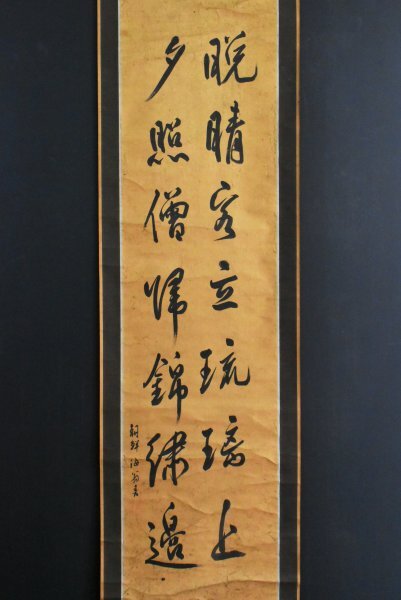 晩晴客立琉璃上
夕照僧帰錦繍邉
朝鮮海翁書